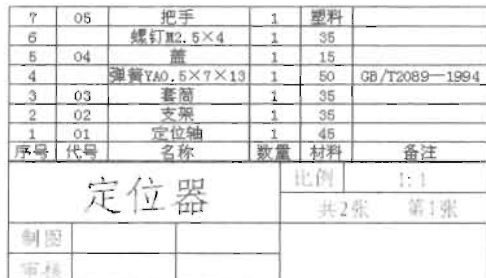 7 05 把手 1 塑料
6 螺钉M2.5×4 1 35
5 04 盖 1 15
4 弹簧YA0.5×7×13 1 50 GB/T2089—1994
3 03 套筒 1 35
2 02 支架 1 35
1 01 定位轴 1 45
序号 代号 名称 数量 材料 备注
定位器 比例 1:1
共2张 第1张
制图
审核